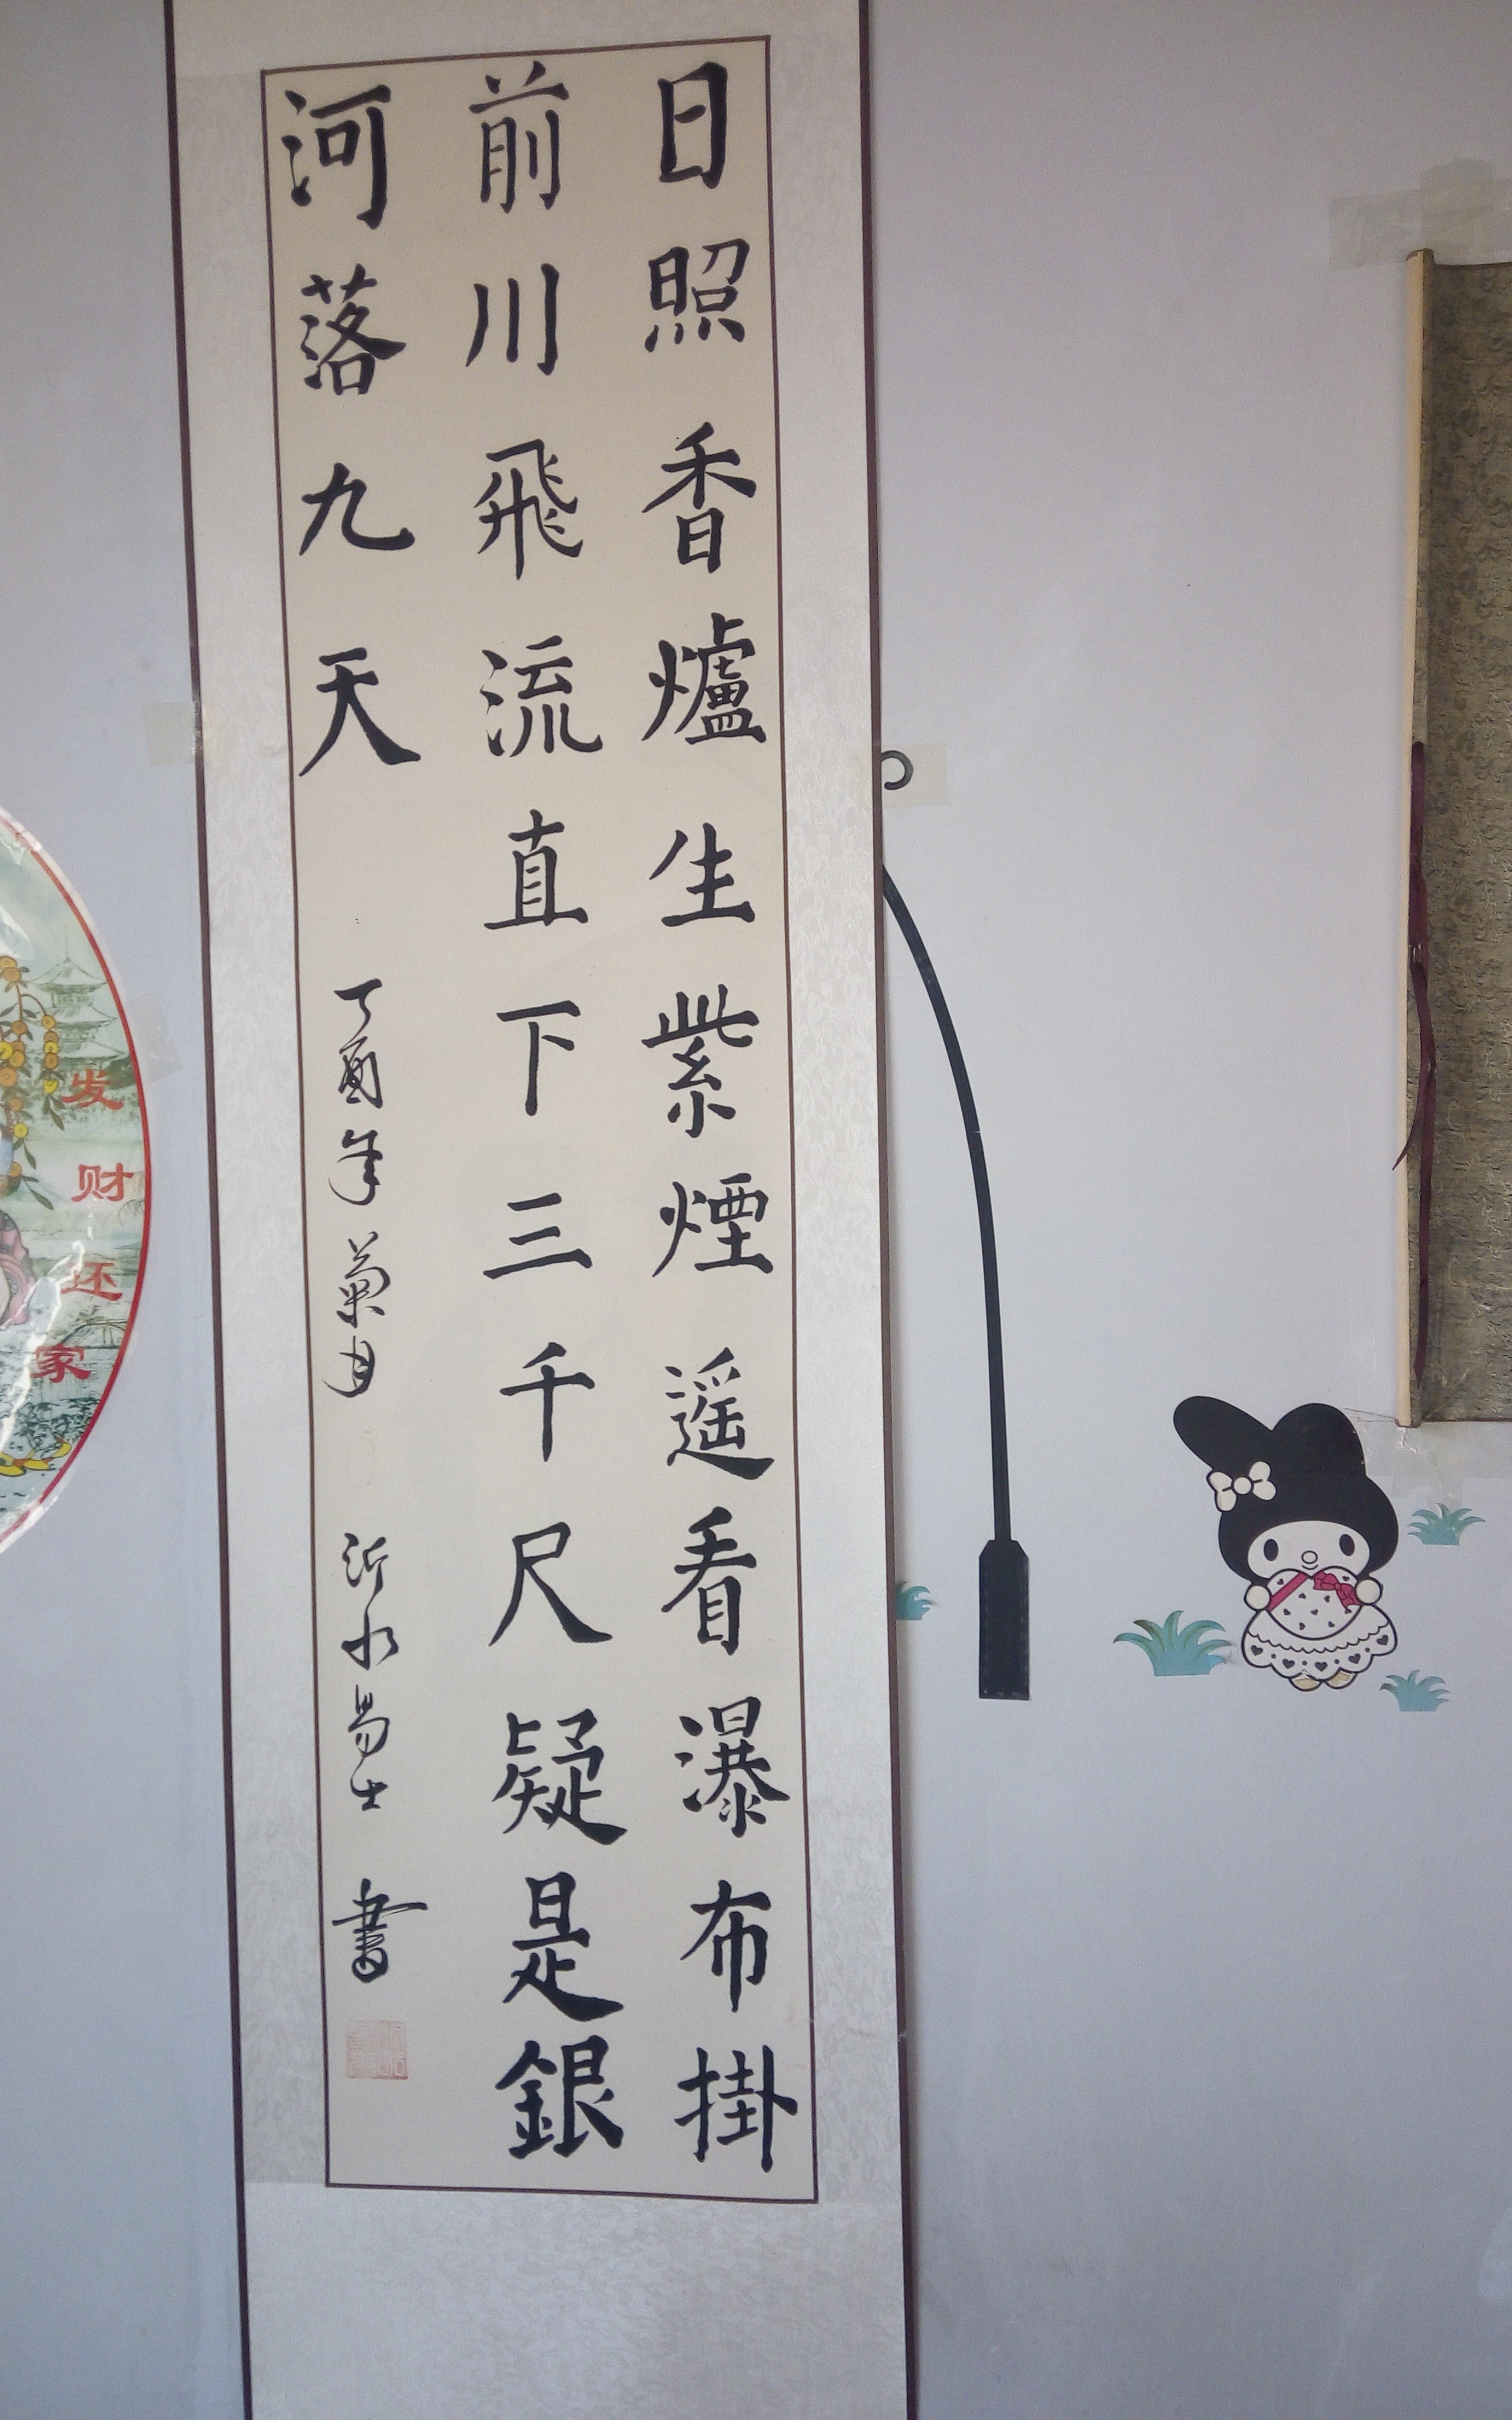 日照香爐生紫煙遥看瀑布掛
前川飛流直下三千尺疑是銀
河落九天
丁酉年菊月
沂水易士書
发财还家